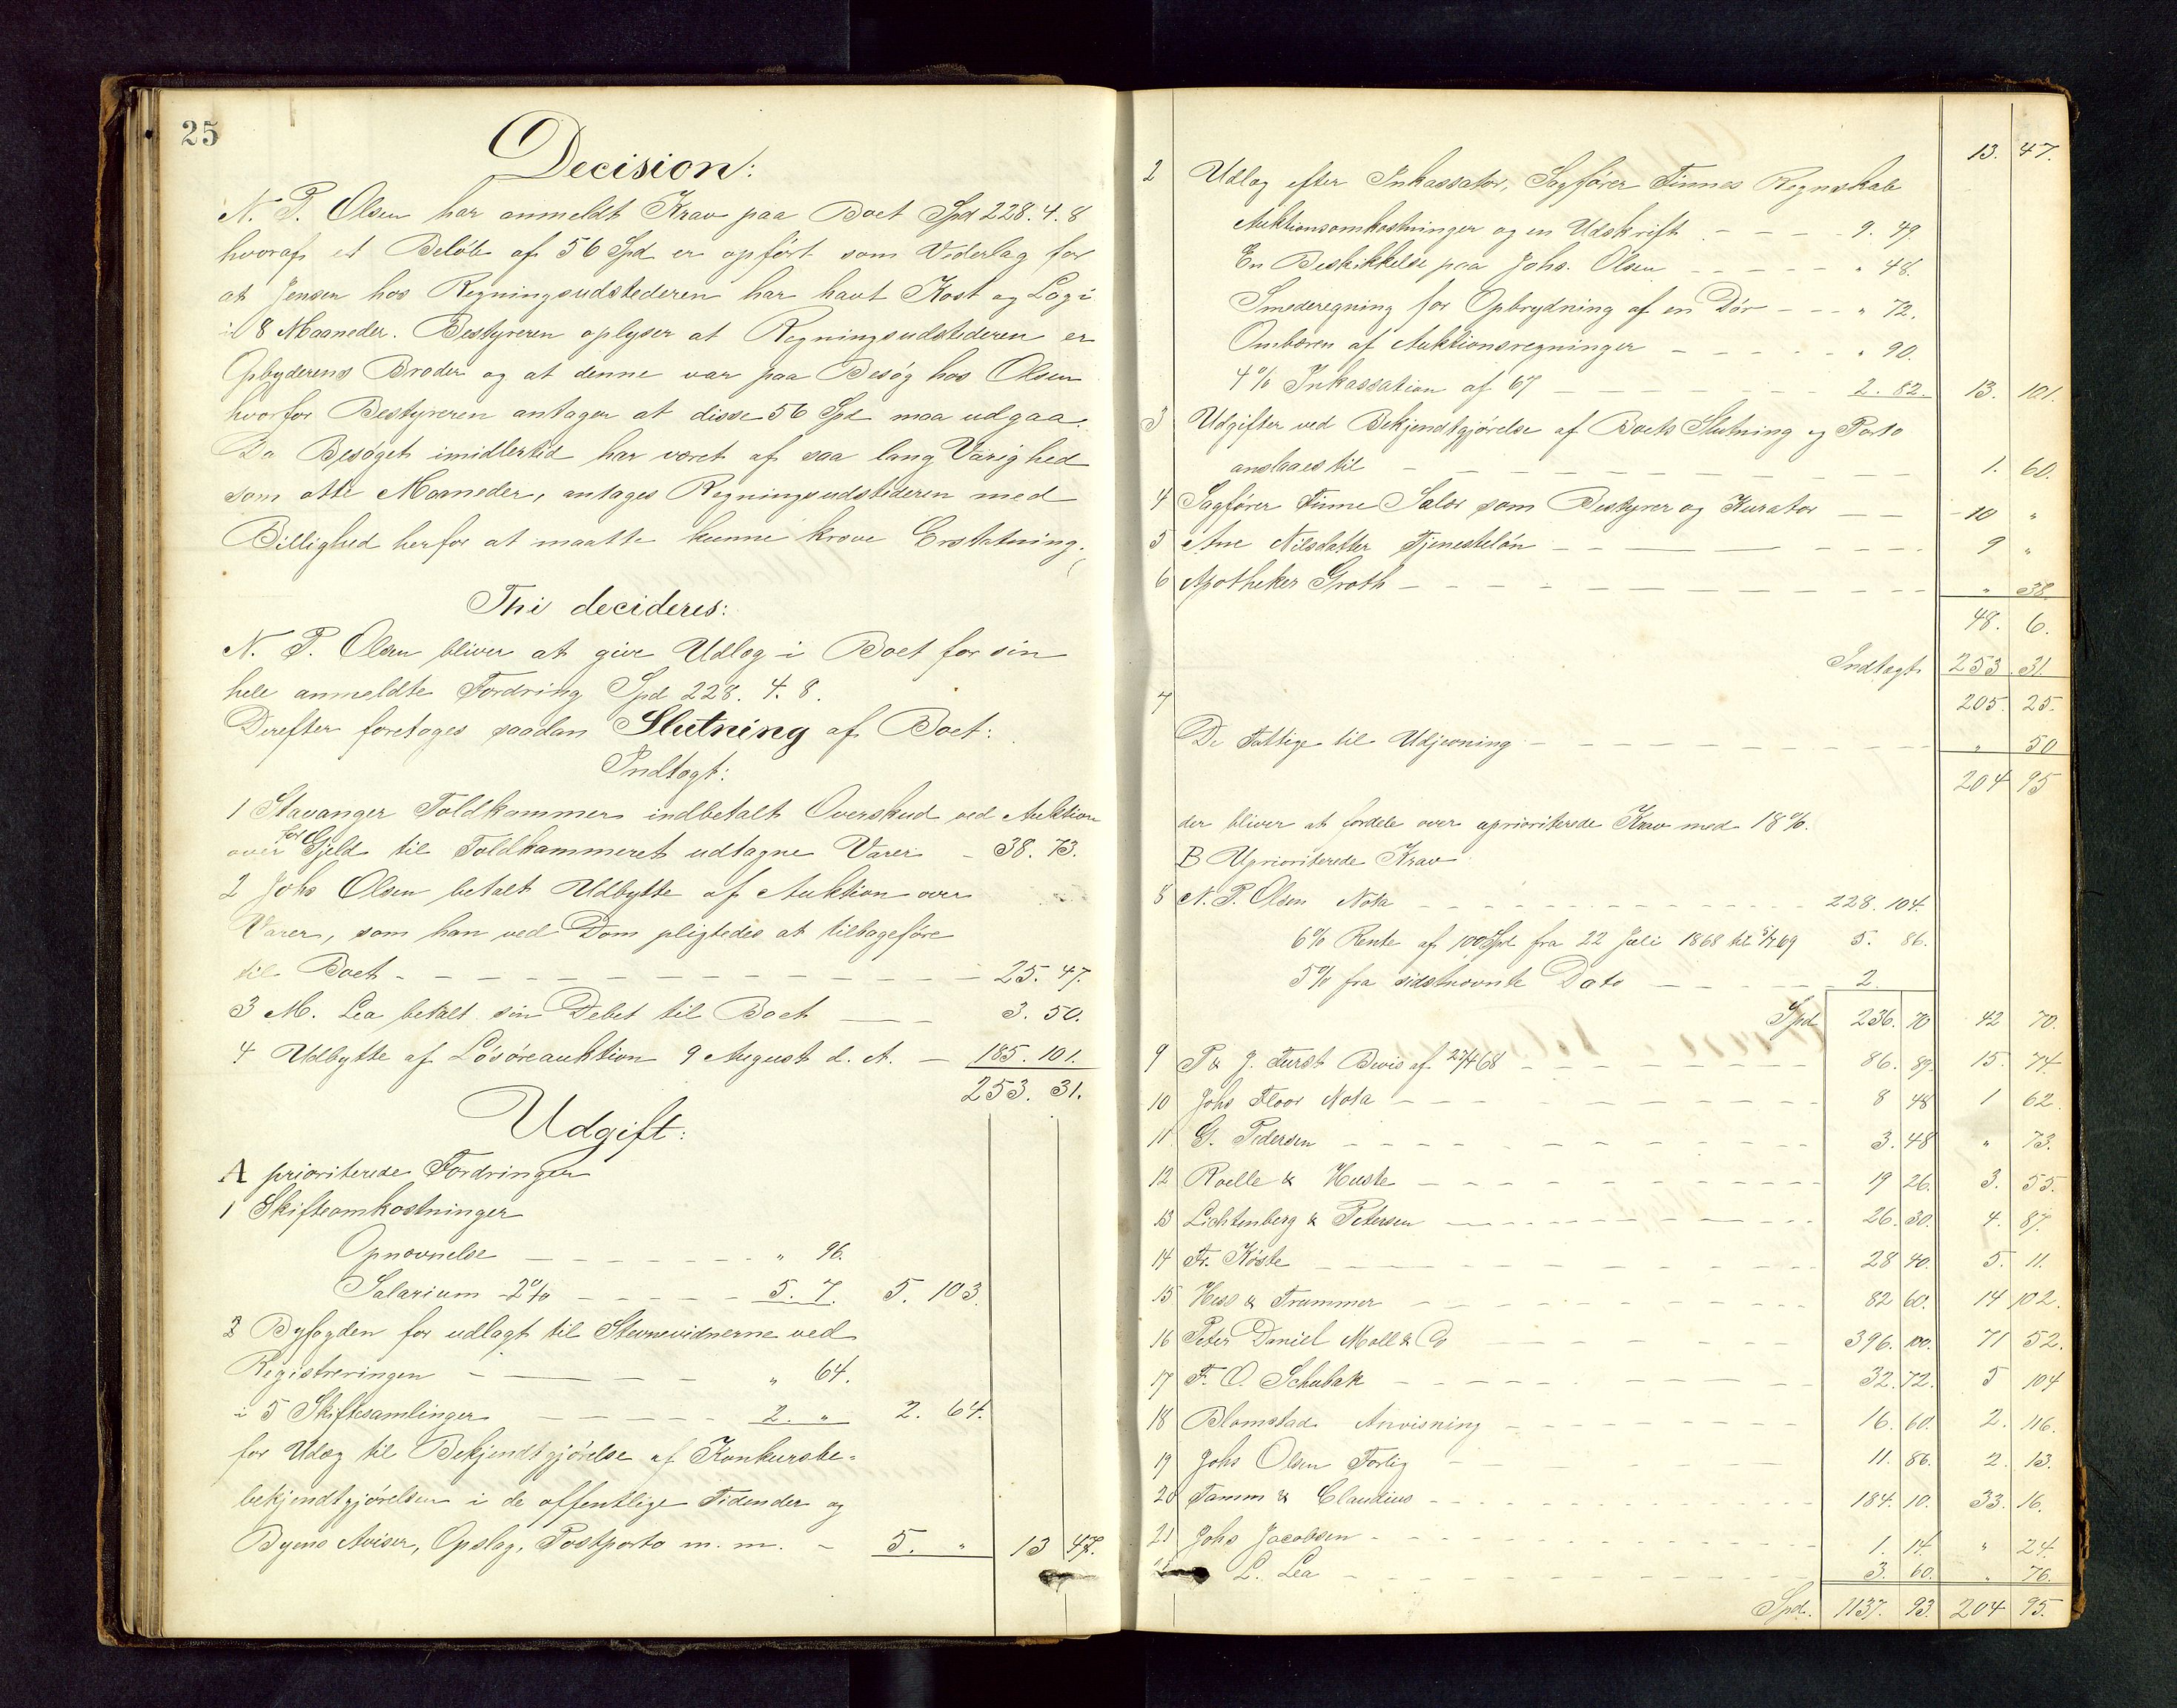 25
Decision:
N. P. Olsen har anmeldt Krav paa Boet Spd 228. 4. 8
hvoraf et Beløb af 56 Spd er opført som Vederlag for
at Jensen hos Regningsudstederen har havt Kost og Logi
i 8 Maaneder. Bestyreren oplyser at Regningsudstederen er
Opbyderens Broder og at denne var paa Besøg hos Olsen
hvorfor Bestyreren antager at disse 56 Spd maa udgaa.
Da Besøget imidlertid har været af saa lang Varighed
som otte Maaneder, antages Regningsudstederen med
Billighed herfor at maatte kunne kræve Erstatning.
Thi decideres:
N. P. Olsen bliver at give Udlæg i Boet for sin
hele anmeldte Fordring Spd 228. 4. 8.
Derefter foretages saadan Slutning af Boet:
Indtægt:
1 Stavanger Toldkammer indbetalt Overskud ved Auktion
over for Gjeld til Toldkammeret udtagne Varer - 38. 73.
2 Johs Olsen betalt Udbytte af Auktion over
Varer, som han ved Dom pligtedes at tilbageføre
til Boet - - - 25. 47.
3 M. Lea betalt sin Debet til Boet - - 3. 50.
4 Udbytte af Løsøreauktion 9 August d. A. - 185. 101.
253. 31.
Udgift:
A prioriterede Fordringer
1 Skifteomkostninger
Opnævnelse - - - " 96.
Salarium 2% - - - 5. 7. 5. 103.
2 Byfogden for udlagt til Stevnevidnerne ved
Registreringen - - - " 64.
i 5 Skiftesamlinger - - - 2. " 2. 64.
for Udlæg til Bekjendtgjørelse af Konkursbe-
bekjendtgjørelsen i de offentlige Tidender og
Byens Aviser, Opslag, Postporto m. m. - 5. " 13 47.
13. 47.
2 Udlæg efter Inkassator, Sagfører Finnes Regnskab
Auktionsomkostninger og en Udskrift - - - 9. 49.
En Beskikkelse paa Johs. Olsen - - - " 48.
Smederegning for Opbrydning af en Dør - - - " 72.
Ombæren af Auktionsregninger - - - " 90.
4% Inkassation af 67 - - - 2. 82. 13. 101.
3 Udgifter ved Bekjendtgjørelse af Boets Slutning og Porto
anslaaes til - - - 1. 60.
4 Sagfører Finne Salær som Bestyrer og Kurator - - 10 "
5 Ane Nilsdatter Tjenesteløn - - - 9 "
6 Apotheker Groth - - - " 38.
48. 6.
Indtægt 253. 31.
205. 25.
7
De Fattige til Udjevning - - - " 50
204 95
der bliver at fordele over uprioriterede Krav med 18%.
B Uprioriterede Krav
8 N. P. Olsen Nota - - - 228. 104.
6% Rente af 100 Spd fra 22 Juli 1868 til 5/7 69 5. 86.
5% fra sidstnævnte Dato - - - 2.
Spd 236. 70 42 70.
9 P & J. Furst Bevis af 27/4 68 - - - 86. 89. 15. 74.
10 Johs Floor Nota - - - 8 48 1 62.
11 G. Pedersen - - - 3. 48 " 73.
12 Roelle & Huste - - - 19 26. 3. 55.
13 Lichtenberg & Petersen - - - 26. 30. 4. 87.
14 Fr. Køste - - - 28 40. 5. 11.
15 Hess & Trummer - - - 82 60. 14 102.
16 Peter Daniel Moll & Co - - - 396. 100. 71 52.
17 F. O. Schubak - - - 32. 72. 5 104
18 Blomstad Anvisning - - - 16. 60. 2. 116.
19 Johs Olsen Forlig - - - 11. 86. 2. 13.
20 Tamm & Claudius - - - 184. 10. 33. 16.
21 Johs Jacobsen - - - 1. 14. " 24.
L. Lea - - - 3. 60. " 76.
Spd. 1137. 93. 204 95.